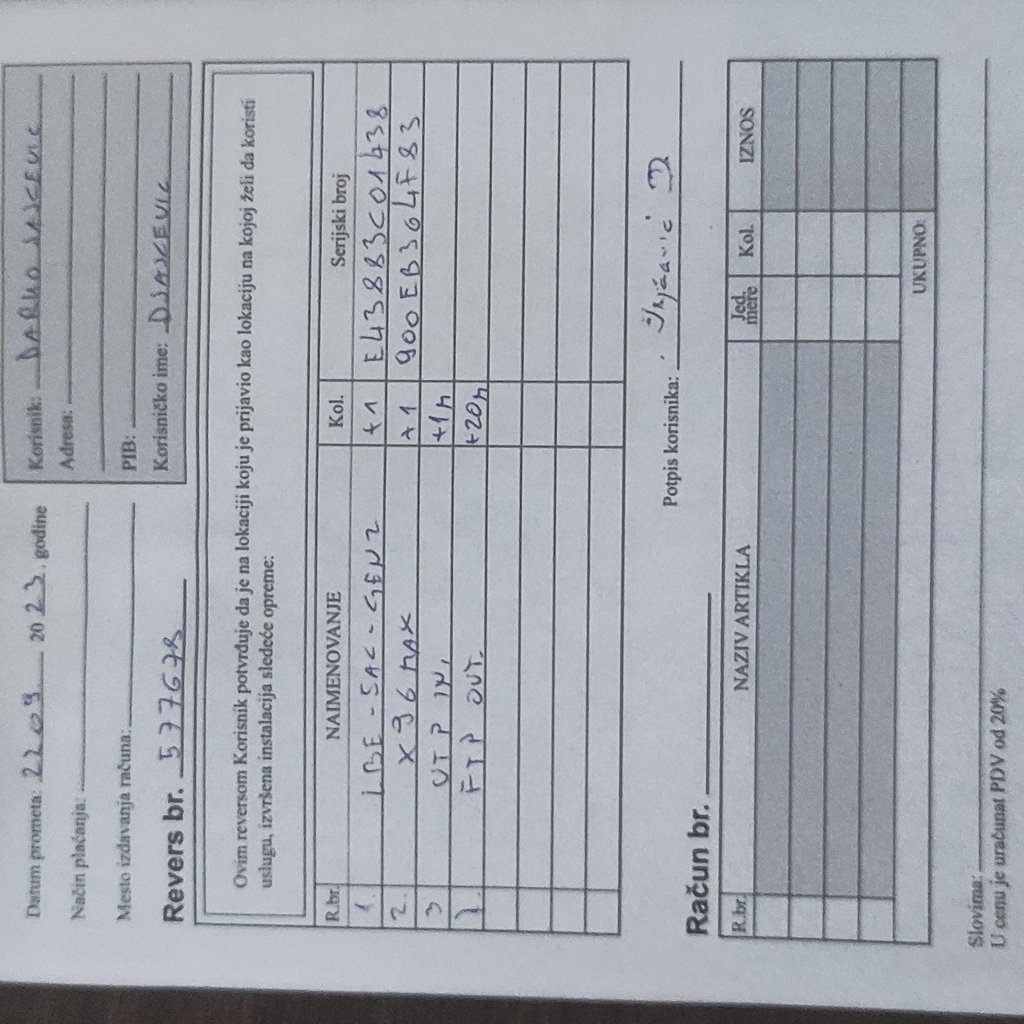 Datum prometa: 2209 2023. godine
Način plaćanja:
Mesto izdavanja računa:
Revers br. 57767B
Korisnik: DARKO
Adresa:
PIB:
Korisničko ime:
Ovim reversom Korisnik potvrđuje da je na lokaciji koju je prijavio kao lokaciju na kojoj želi da koristi
uslugu, izvršena instalacija sledeće opreme:
R.br. NAIMENOVANJE Kol. Serijski broj
1. LBE-5AC-GEN2 +1 E43883C01438
2. X96 MAX +1 900EB364F83
3 UTP IN. +1m
FTP OUT. +20m
Potpis korisnika:
Račun br.
R.br. NAZIV ARTIKLA Jed. mere Kol. IZNOS
UKUPNO:
Slovima:
U cenu je uračunat PDV od 20%